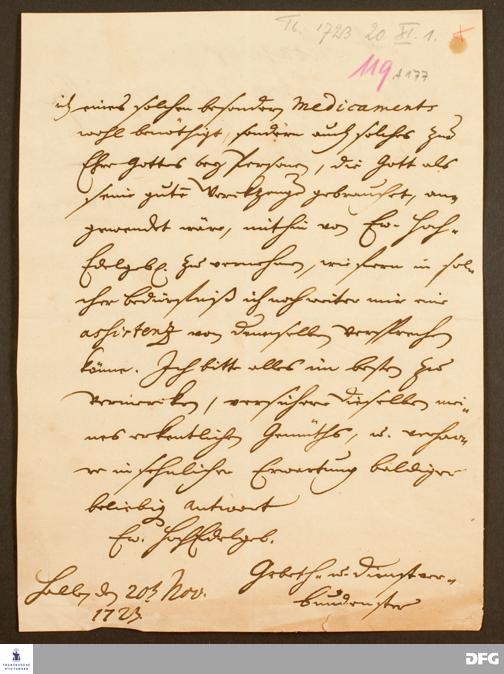 Th. 1723 20 XI. 1.
119 A177
ich eines solchen besondern Medicaments
wohl benöthiget, sondern auch solches zur
Ehre Gottes bey Personen, die Gott als
seine gute Werkzeuge gebrauchet, an-
gewendet wäre, mithin von Ew. Hoch-
Edelgeb. zu vernehmen, wiefern in sol-
cher bedürfniß ich noch weiter mir eine
assistenz von Denenselben versprechen
könne. Ich bitte alles im besten zu
vermerken, versichere Dieselben mei-
nes erkentlichen Gemüths, u. verhar-
re in sehnlicher Erwartung baldiger
beliebig antwort
Ew. HochEdelgeb.
Gebeth- u. Dienstver-
bundenster
Halle, den 20t Nov.
1723.
FRANCKESCHE STIFTUNGEN
DFG